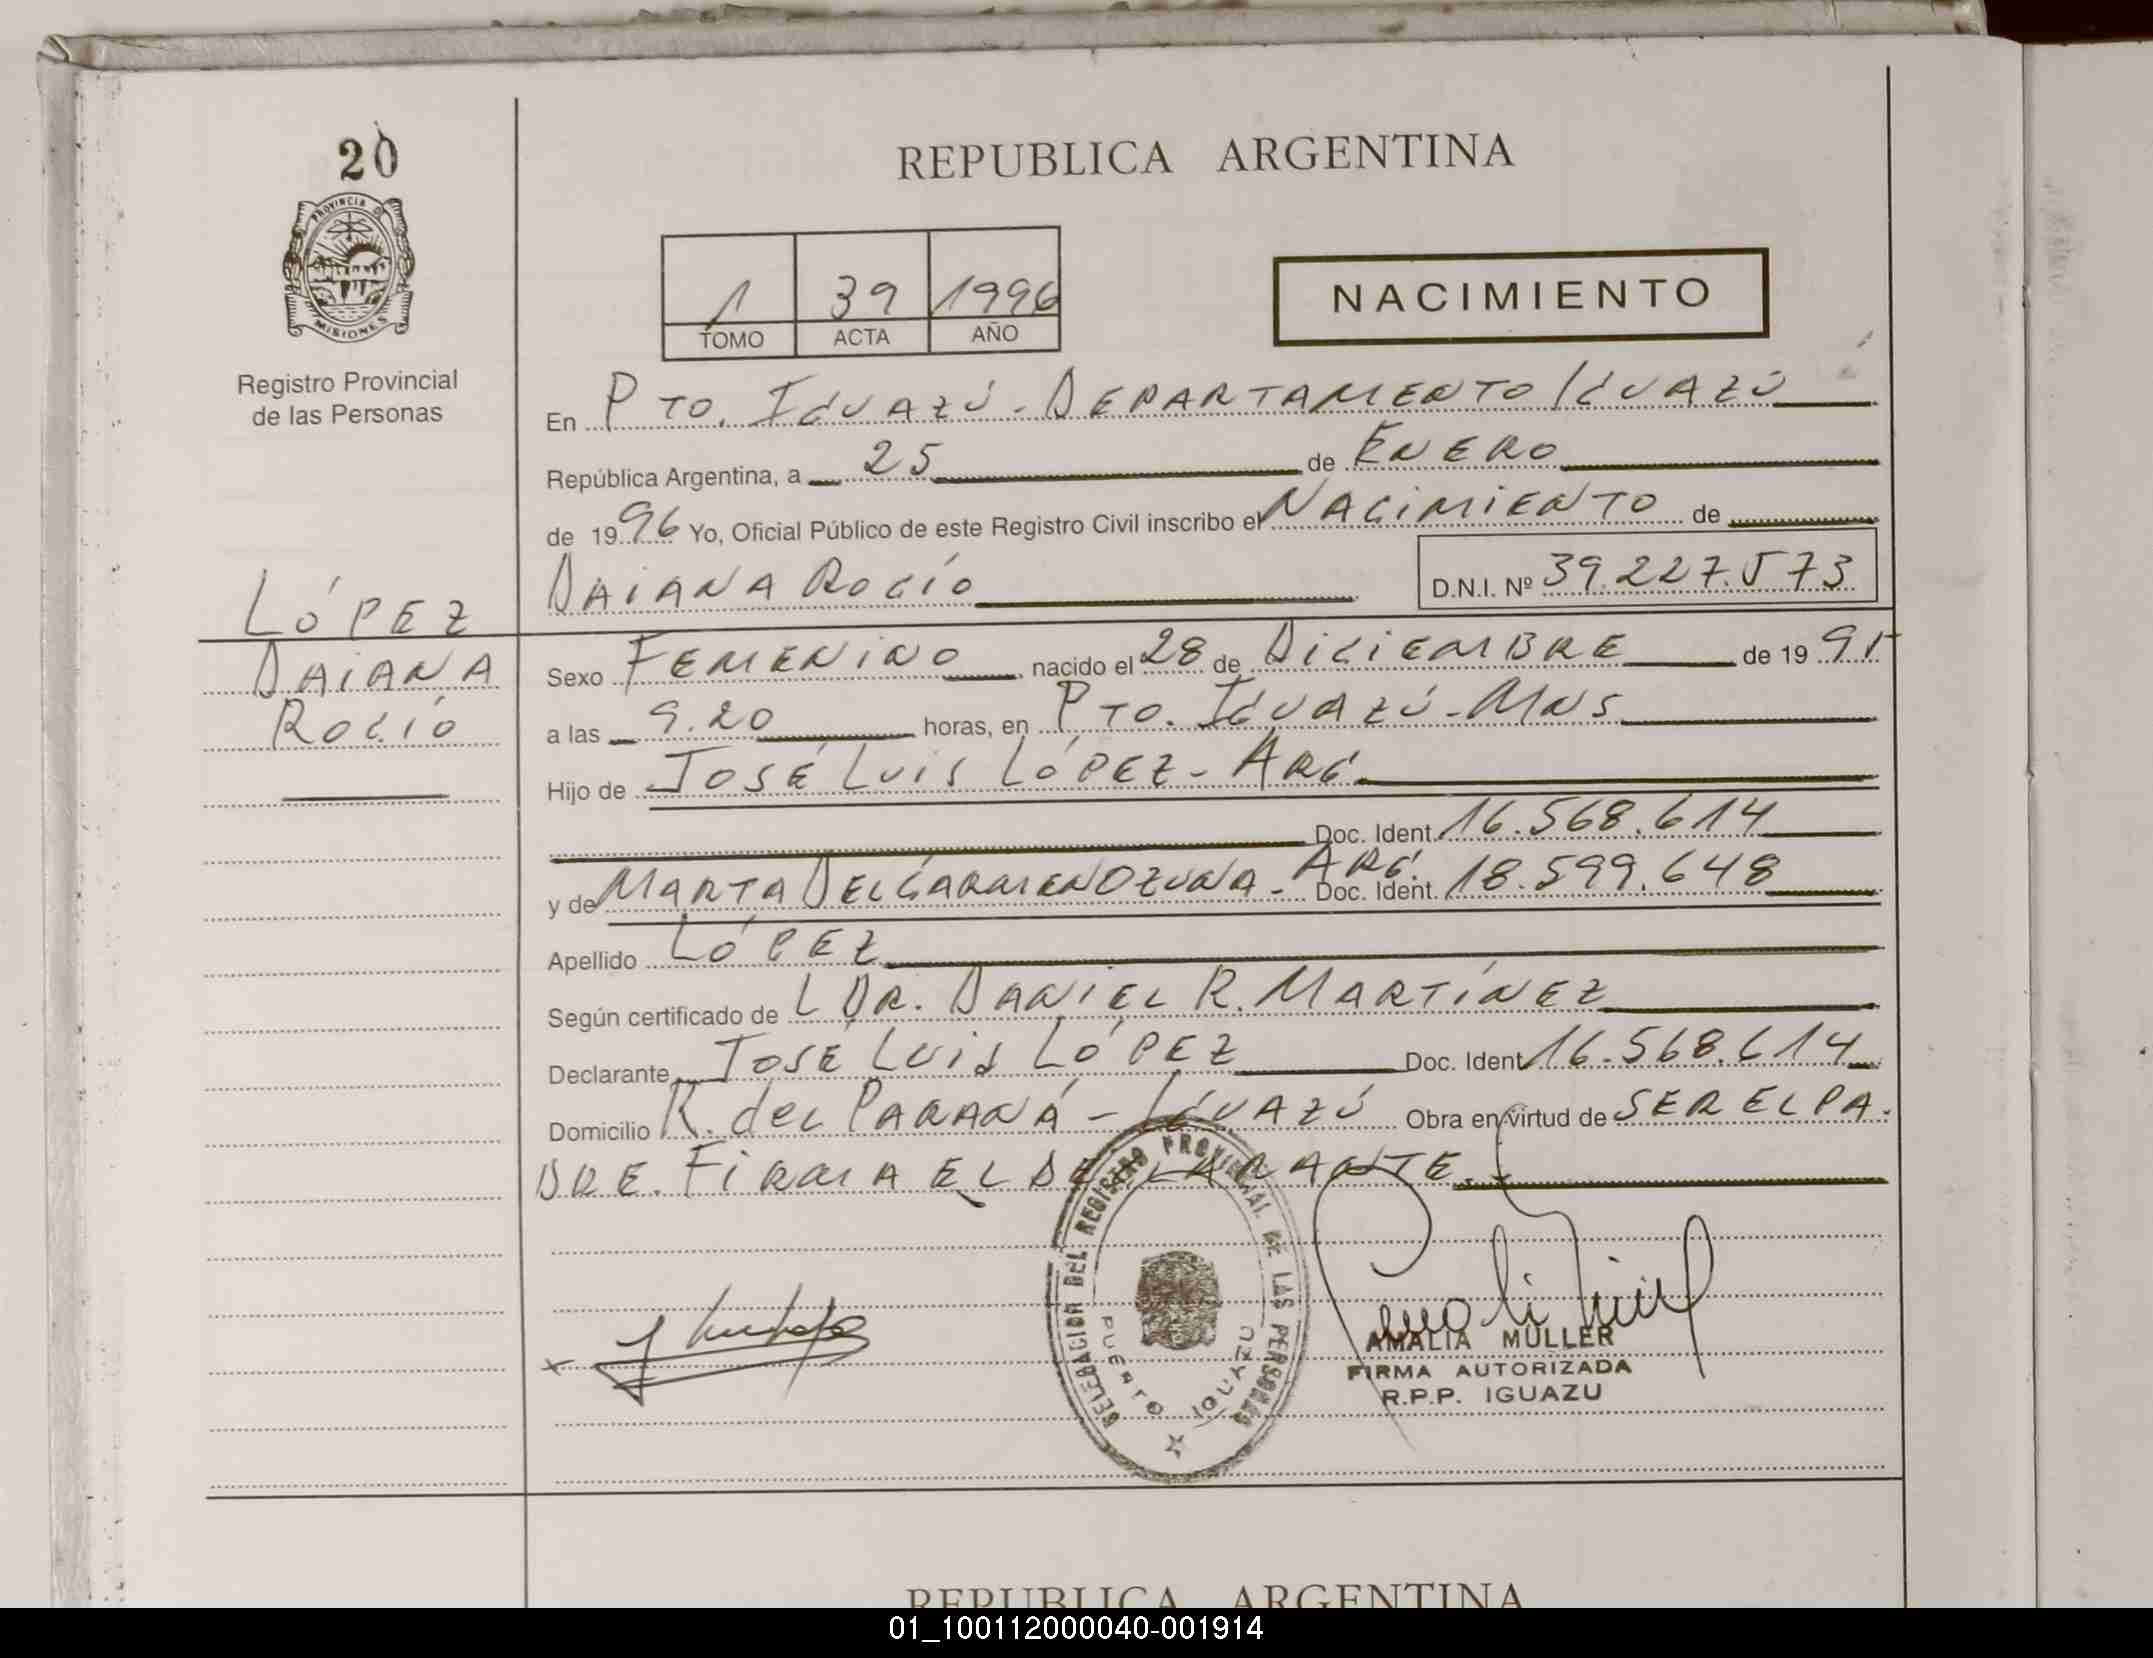 20
REPUBLICA ARGENTINA
PROVINCIA D
MISIONES
1 39 1996
TOMO ACTA AÑO
NACIMIENTO
Registro Provincial
de las Personas
En PTO. IGUAZÚ - DEPARTAMENTO IGUAZÚ
República Argentina, a 25 de ENERO
de 1996 Yo, Oficial Público de este Registro Civil inscribo el NACIMIENTO de
DAIANA ROCÍO D.N.I. Nº 39.227.573
LÓPEZ
DAIANA
ROCÍO
Sexo FEMENINO nacido el 28 de DICIEMBRE de 1995
a las 9.20 horas, en PTO. IGUAZÚ - MNS
Hijo de JOSÉ LUIS LÓPEZ - ARG.
Doc. Ident. 16.568.614
y de MARTA DEL CARMEN OZUNA - ARG. Doc. Ident. 18.599.648
Apellido LÓPEZ
Según certificado de L DR. DANIEL R. MARTÍNEZ
Declarante JOSÉ LUIS LÓPEZ Doc. Ident 16.568.614
Domicilio R. del PARANÁ - IGUAZÚ Obra en virtud de SER EL PA-
DRE. FIRMA EL DECLARANTE.
DELEGACION DEL REGISTRO PROVINCIAL DE LAS PERSONAS
PUERTO IGUAZU
AMALIA MÜLLER
FIRMA AUTORIZADA
R.P.P. IGUAZU
REPUBLICA ARGENTINA
01_100112000040-001914